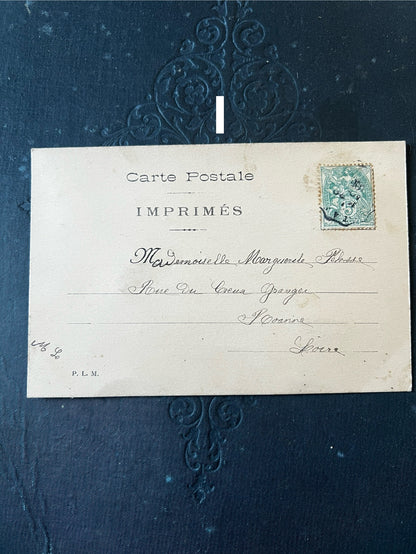 Carte Postale
IMPRIMÉS
Mademoiselle Marguerite
Rue Du Creux Granger
Roanne
Loire
M L
P. L. M.